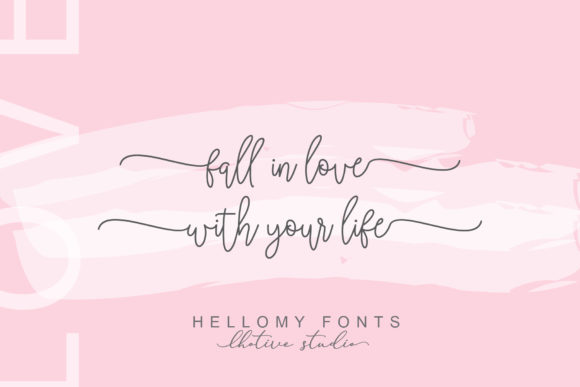 LOVE
fall in love
with your life
HELLOMY FONTS
lhotive studio